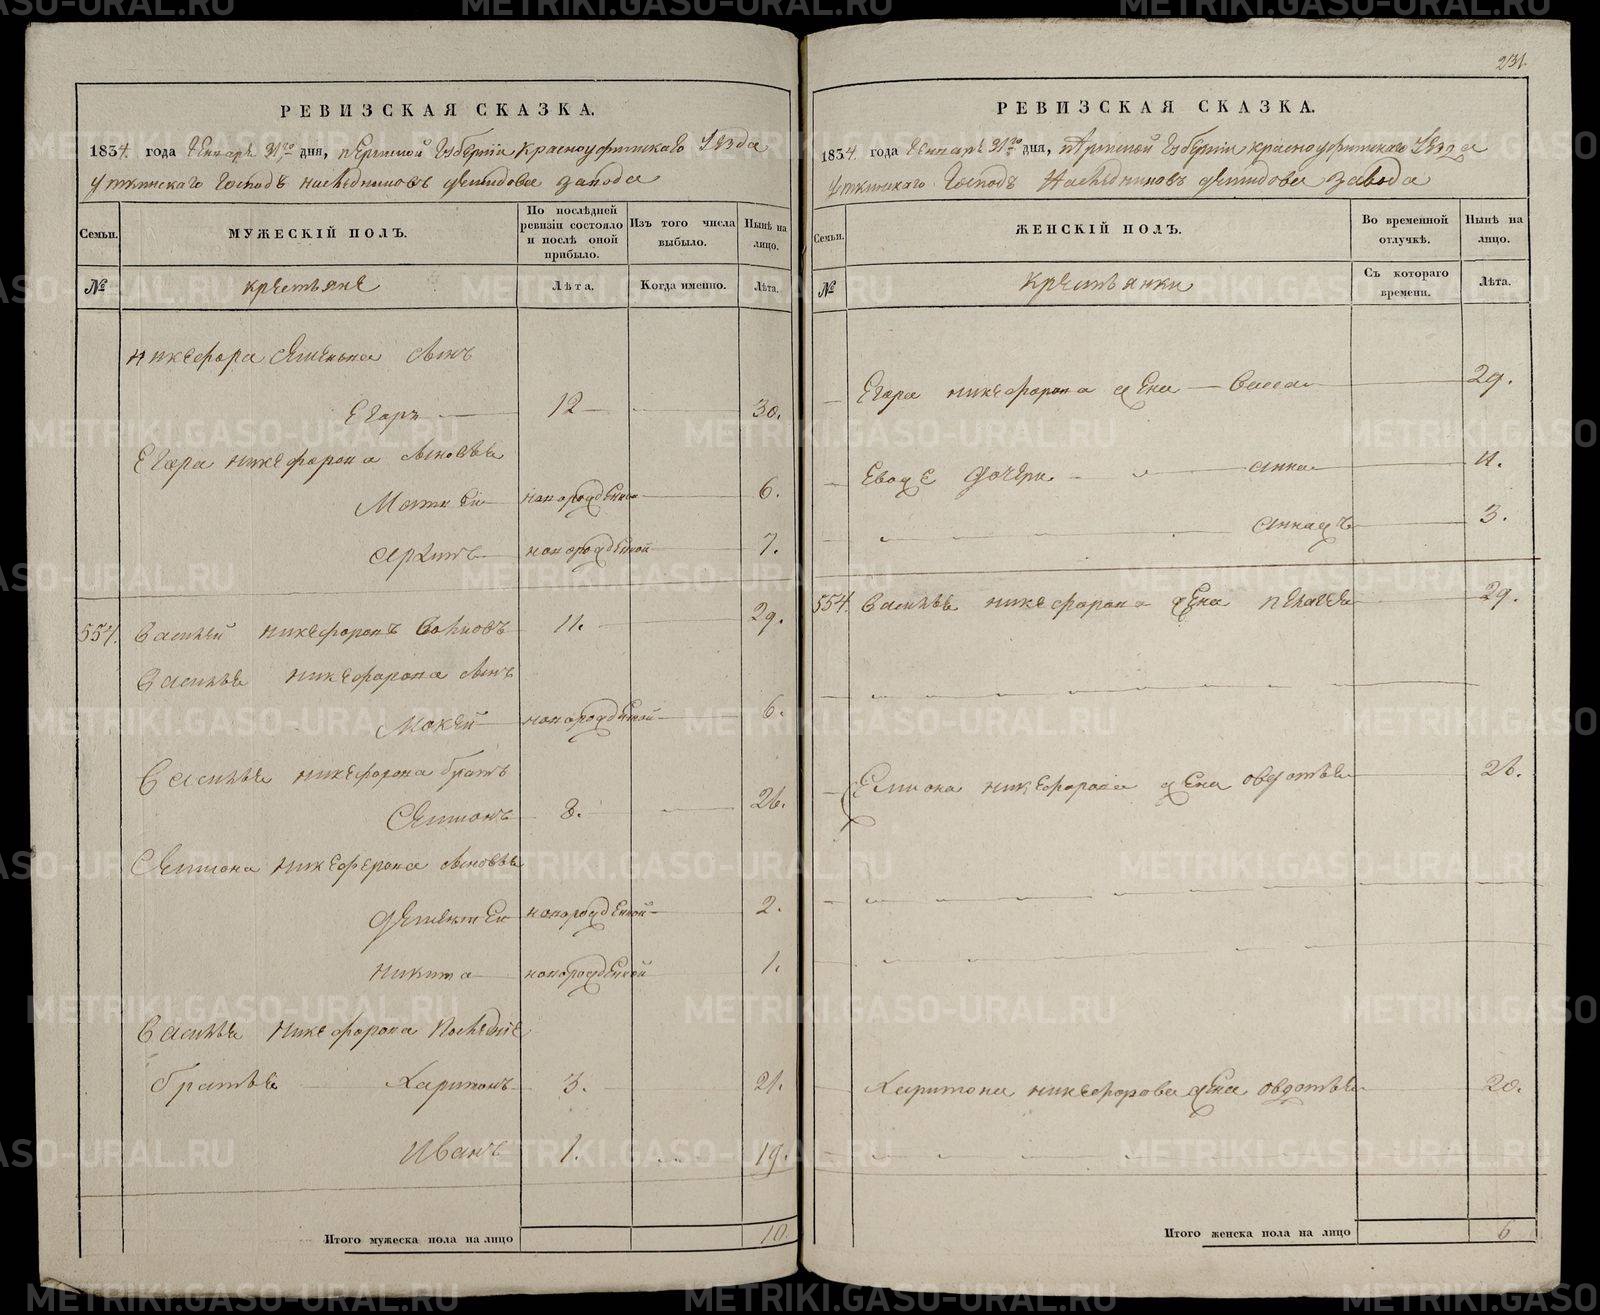 РЕВИЗСКАЯ СКАЗКА.
1834. года Генваря 31го дня, Пермской Губернии Красноуфимского Уезда
Уткинского Господъ наследниковъ Демидова завода
Семьи. МУЖЕСКІЙ ПОЛЪ. По послѣдней ревизіи состояло и послѣ оной прибыло. Изъ того числа выбыло. Нынѣ на лицо.
№ крестьяне Лѣта. Когда именно. Лѣта.
никефора сынъ
Егаръ 12 30.
Егара никефорова сыновья
новорожденной 6.
новорожденной 7.
554. Василей никефоровъ 11. 29.
Василья никефорова сынъ
Мокей новорожденной 6.
Василья никефорова братъ
Семионъ 8. 26.
Семиона никеферова сыновья
Дементей новорожденной 2.
никита новорожденной 1.
Василья никефорова последніе
братья Харитонъ 3. 21.
Иванъ 1. 19.
Итого мужеска пола на лицо 10.
231.
РЕВИЗСКАЯ СКАЗКА.
1834. года Генваря 31го дня, Пермской Губернии красноуфимского Уезда
Уткинскаго Господъ Наследниковъ Демидова завода
Семьи. ЖЕНСКІЙ ПОЛЪ. Во временной отлучкѣ. Нынѣ на лицо.
№ крестьянки Съ котораго времени. Лѣта.
Егара никефорова жена 29.
дочери анна 11.
3.
554. Василья никефорова жена пелагея 29.
Семиона никефорова жена овдотья 26.
Харитона никефорова жена овдотья 20.
Итого женска пола на лицо 6
METRIKI.GASO-URAL.RU